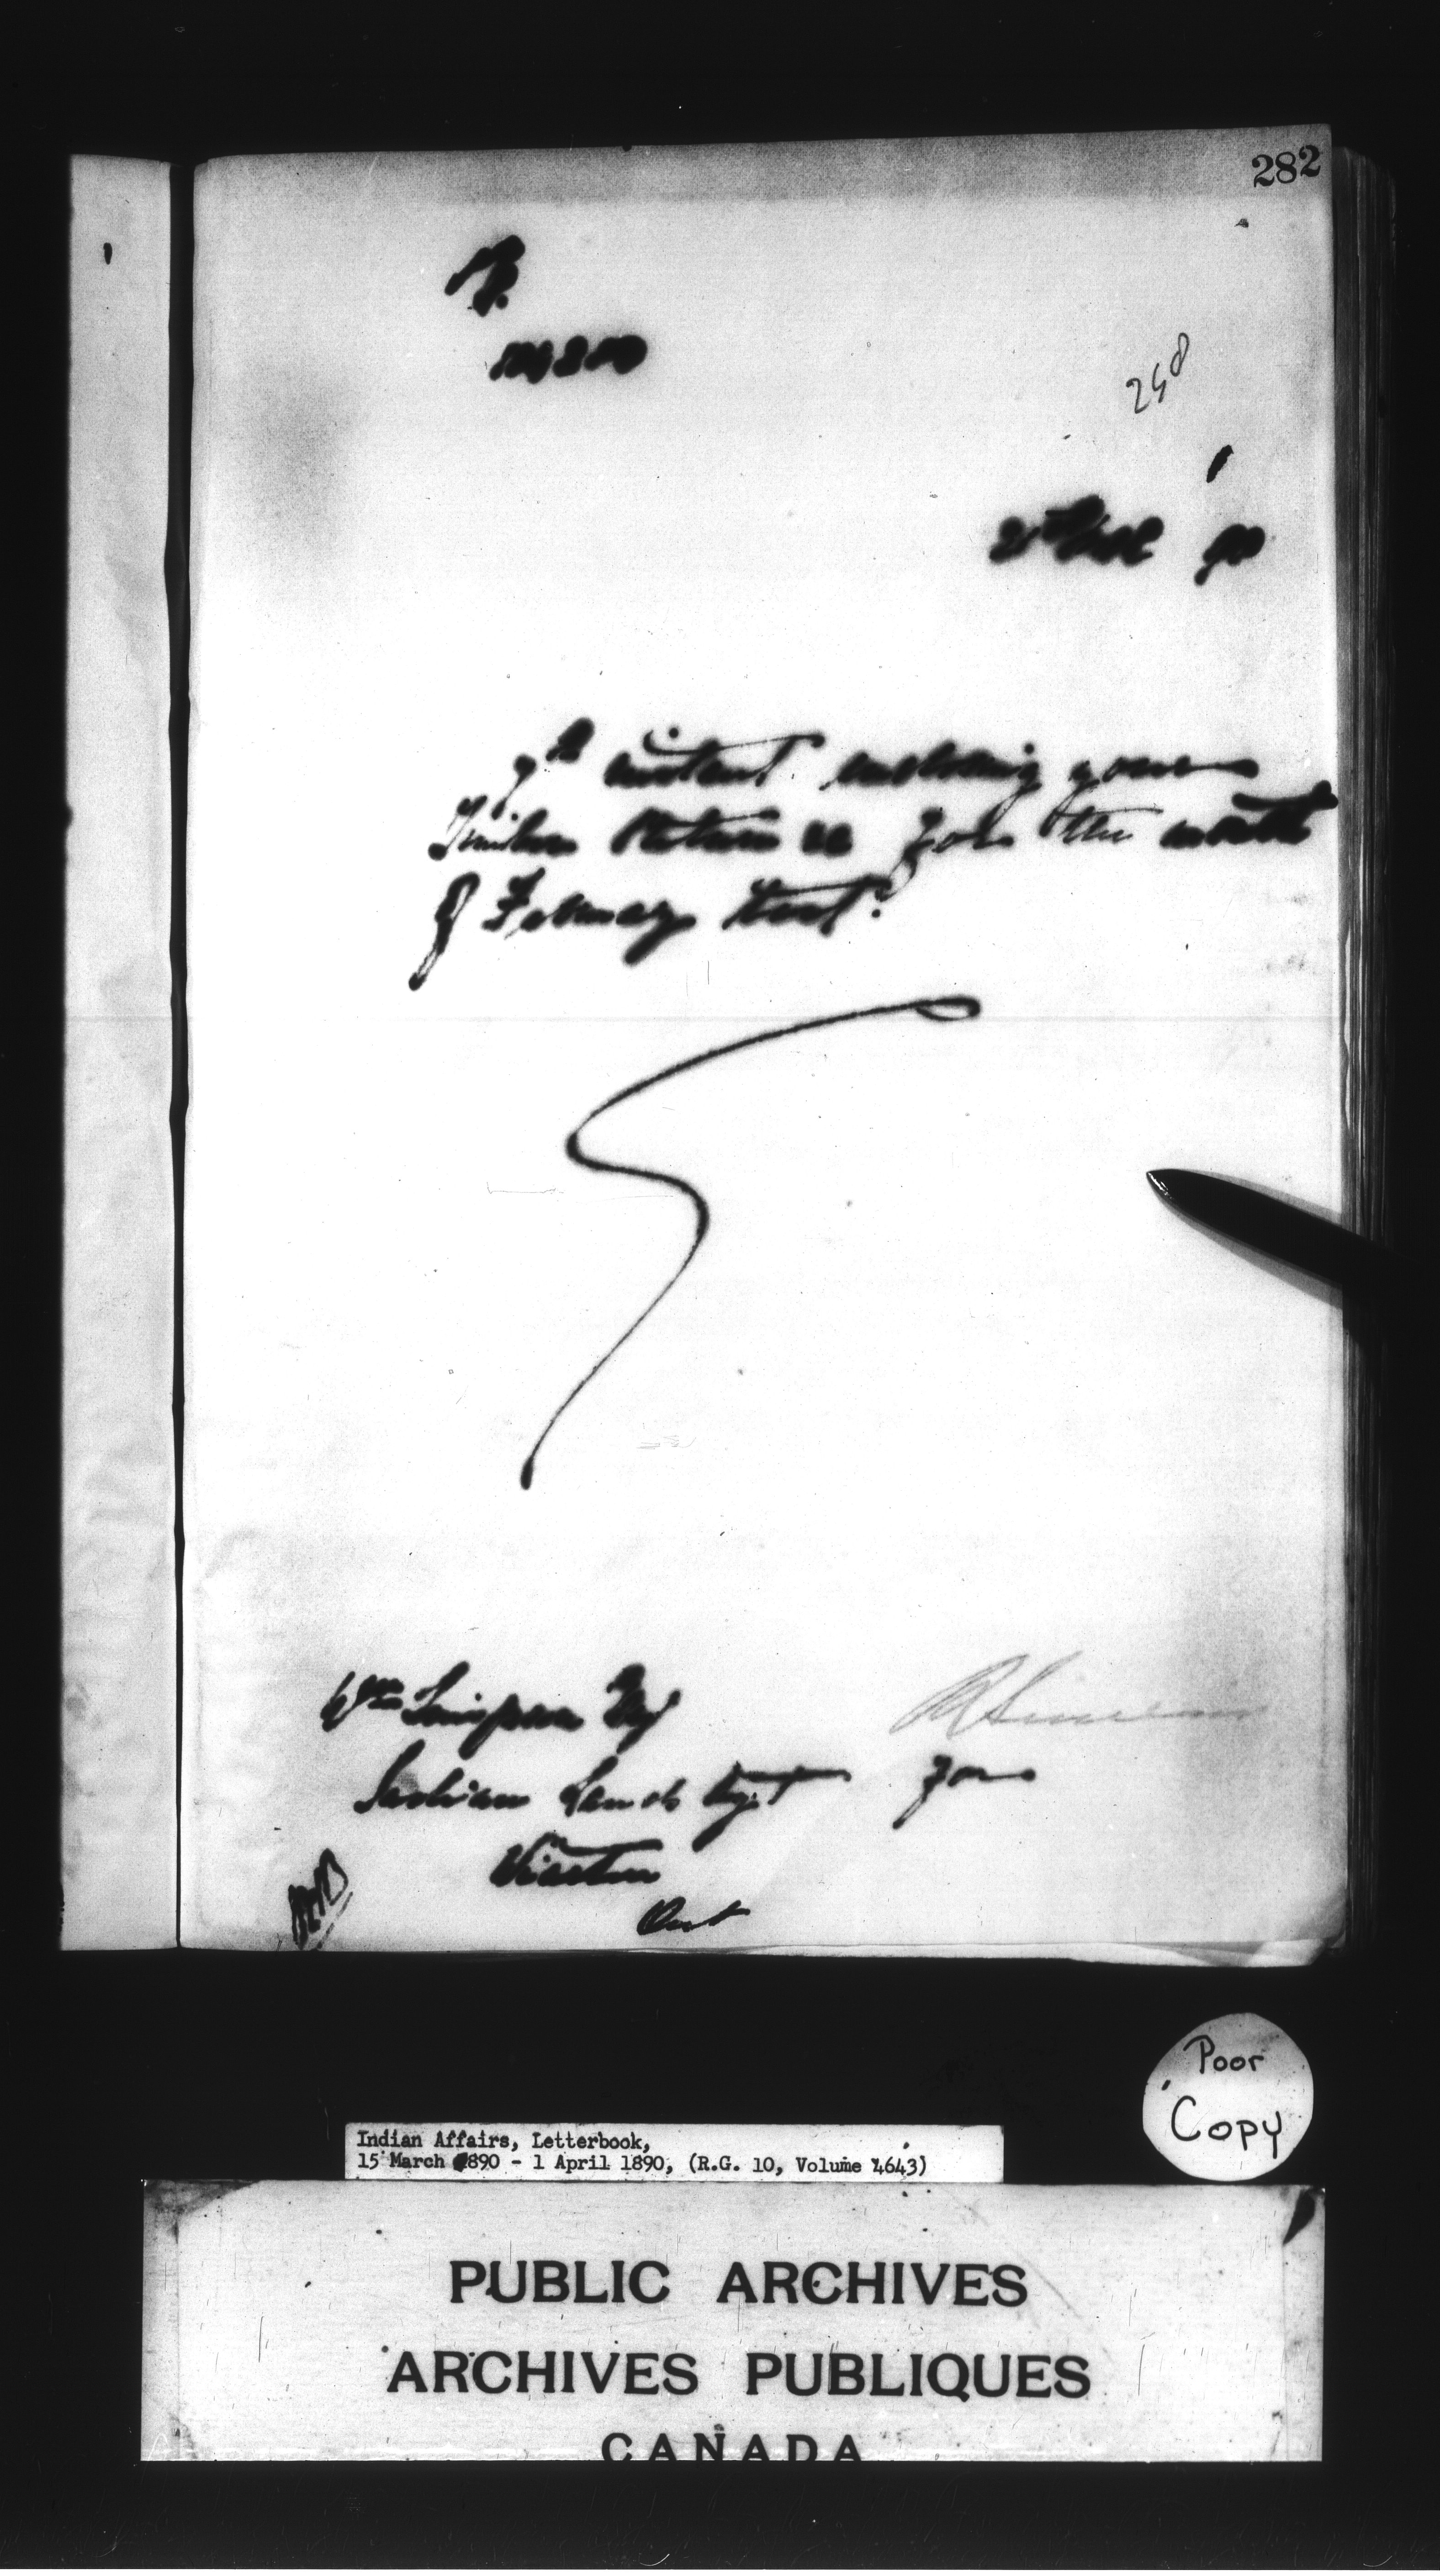 282
258
90
7th instant enclosing your
Timber Return &c for the month
of February last.
Wm Simpson Esq
Indian Lands Agt for
Wiarton
Ont
Poor
Copy
Indian Affairs, Letterbook,
15 March 1890 - 1 April 1890, (R.G. 10, Volume 4643)
PUBLIC ARCHIVES
ARCHIVES PUBLIQUES
CANADA